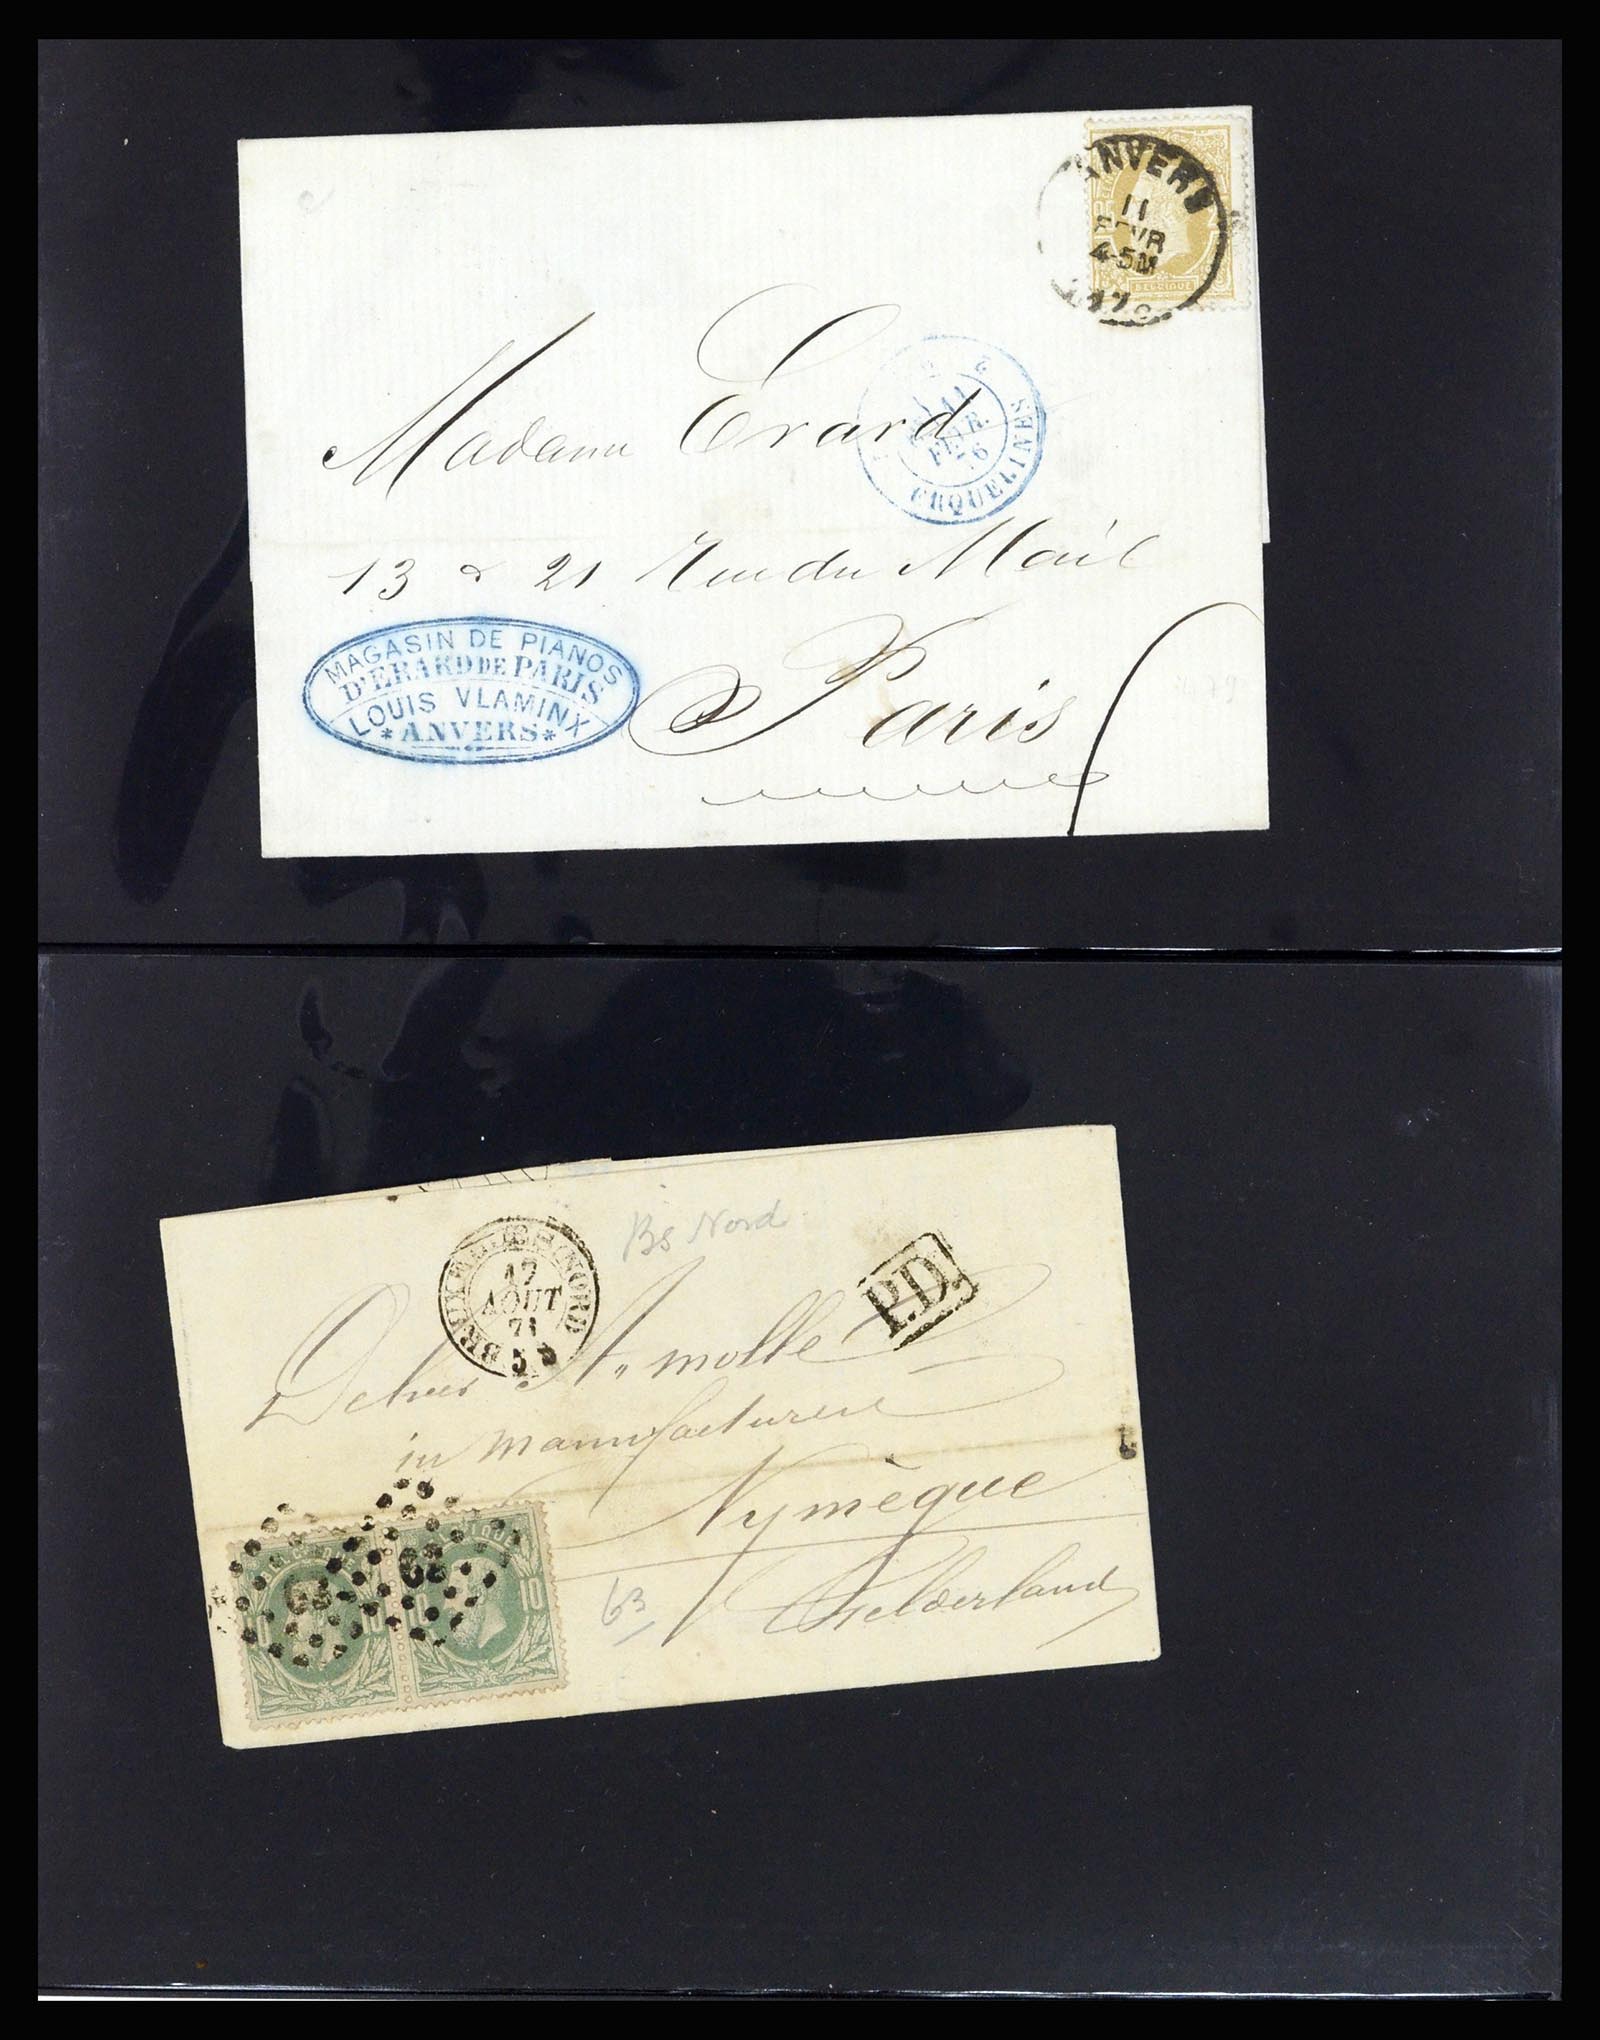 ANVERS
11
FEVR
4-5M
BELGIQUE
Madame Erard
11
FEVR.
76
ERQUELINES
13 & 21 Rue du Mail
Paris
MAGASIN DE PIANOS
D'ERARD DE PARIS
LOUIS VLAMINX
*ANVERS*
Bs Nord
BRUXELLES (NORD)
17
AOUT
71
5 S
P.D.
A. molle
in manufacturen
Nymègue
Gelderland
63
BELGIQUE
10
BELGIQUE
10